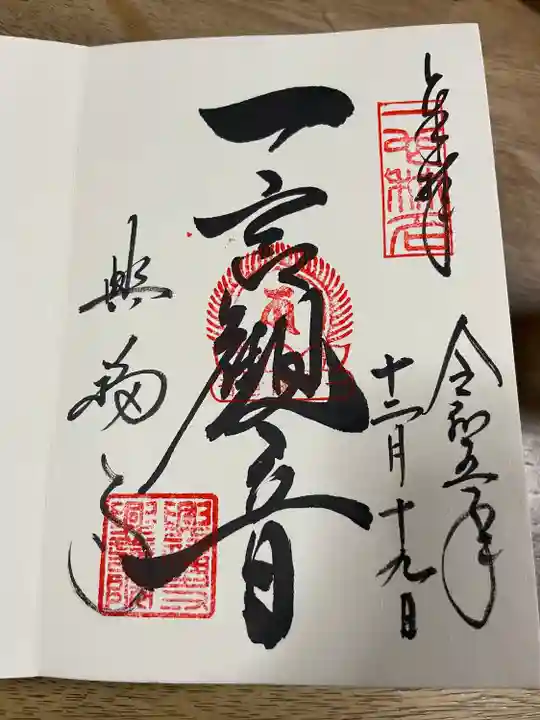 奉拝
令和五年
十二月十九日
一言観音
興福寺